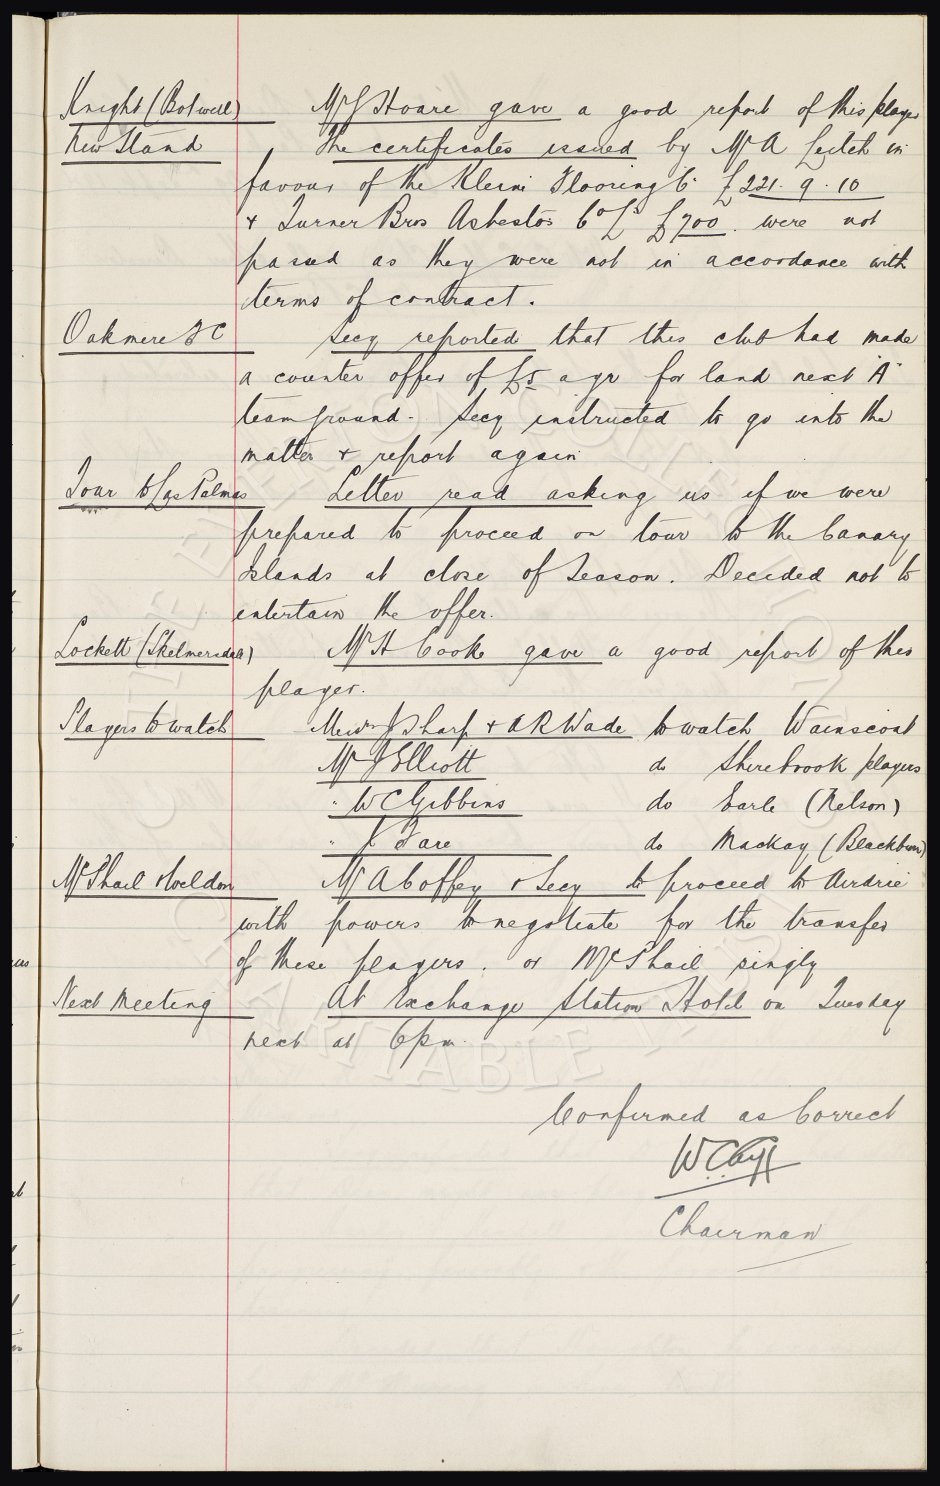 Knight (Botwell) Mr J Hoare gave a good report of this player
New Stand The certificates issued by Mr A Leitch in
favour of the Kleine Flooring Co £221. 9. 10
& Turner Bros Asbestos Co Ld £700. were not
passed as they were not in accordance with
terms of contract.
Oakmere F C Secy reported that this club had made
a counter offer of £5 a yr for land next "A"
team ground. Secy instructed to go into the
matter & report again
Tour to Las Palmas Letter read asking us if we were
prepared to proceed on tour to the Canary
Islands at close of Season. Decided not to
entertain the offer.
Lockett (Skelmersdale) Mr H Cooke gave a good report of this
player.
Players to watch Messrs J Sharp & A R Wade to watch Wainscoat
Mr J Elliott do Shirebrook players
" W C Gibbins do Earle (Nelson)
" J Fare do Mackay (Blackburn)
McPhail & Weldon Mr A Coffey & Secy to proceed to Airdrie
with powers to negotiate for the transfer
of these players. or McPhail singly
Next Meeting At Exchange Station Hotel on Tuesday
next at 6 p m.
Confirmed as Correct
W C Cuff
Chairman